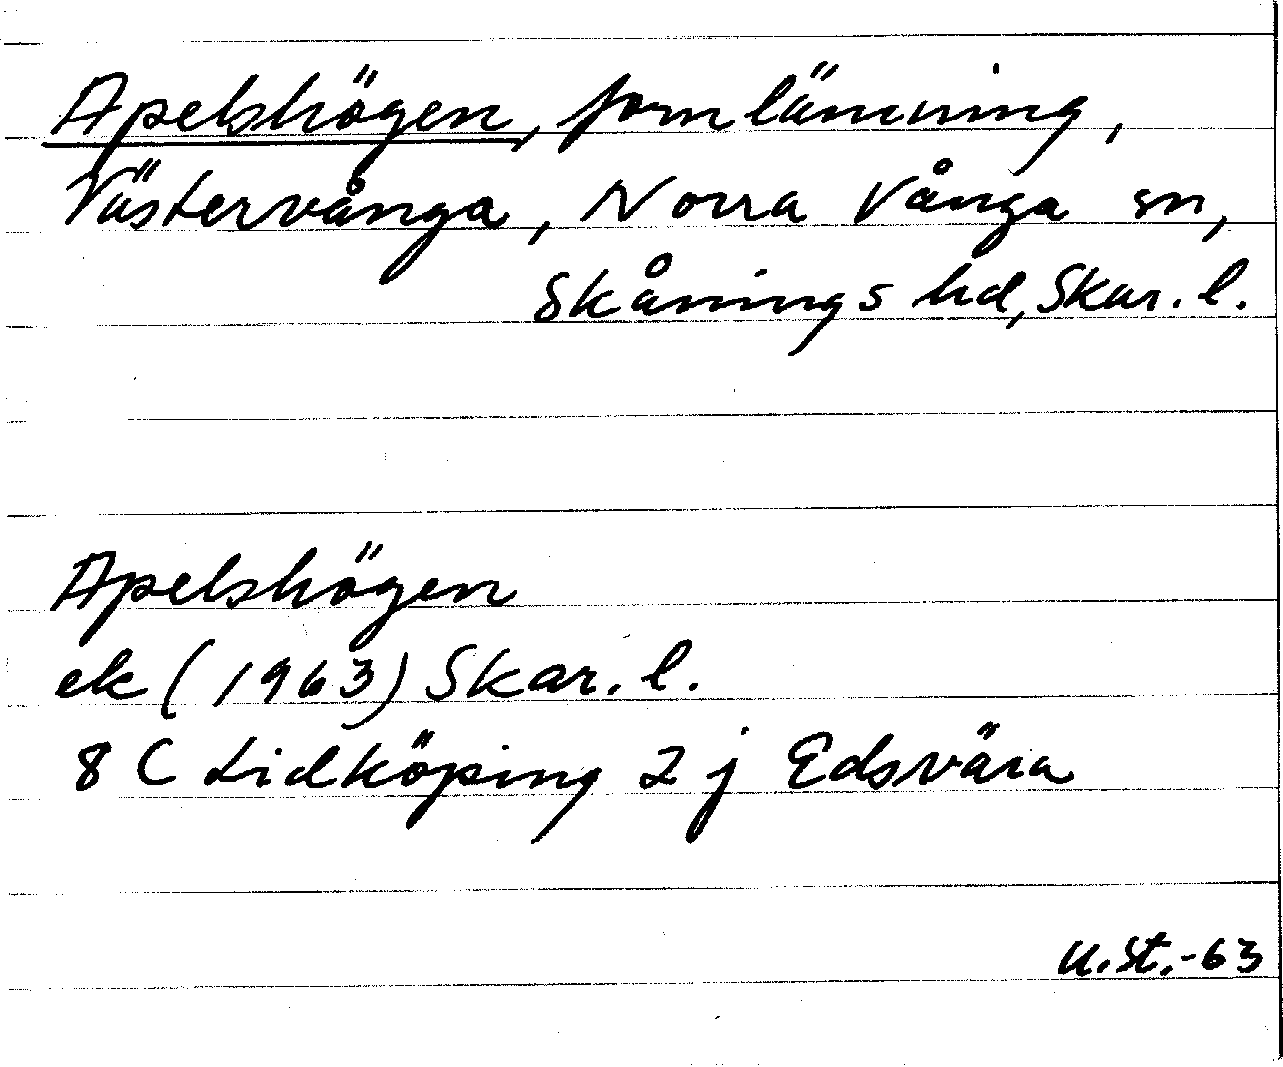 Apelshögen, fornlämning,
Västervånga, Norra Vånga sn,
Skånings hd, Skar. l.
Apelshögen
ek (1963) Skar. l.
8 C Lidköping 2 j Edsvära
U. St. -63